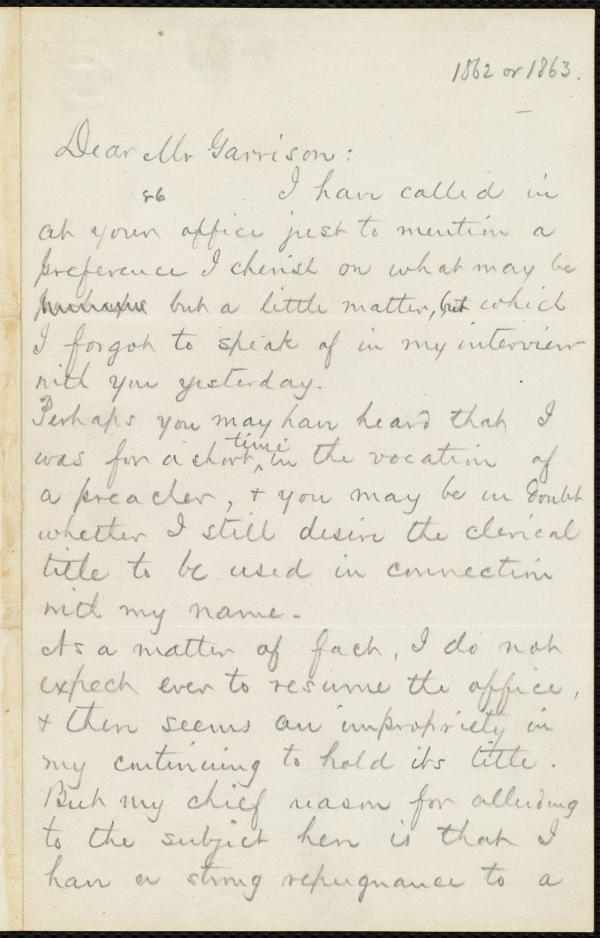 1862 or 1863.
Dear Mr Garrison:
86 I have called in
at your office just to mention a
preference I cherish on what may be
but a little matter, but which
I forgot to speak of in my interview
with you yesterday.
Perhaps you may have heard that I
was for a short time in the vocation of
a preacher, & you may be in doubt
whether I still desire the clerical
title to be used in connection
with my name.
As a matter of fact, I do not
expect ever to resume the office,
& there seems an impropriety in
my continuing to hold its title.
But my chief reason for alluding
to the subject here is that I
have a strong repugnance to a